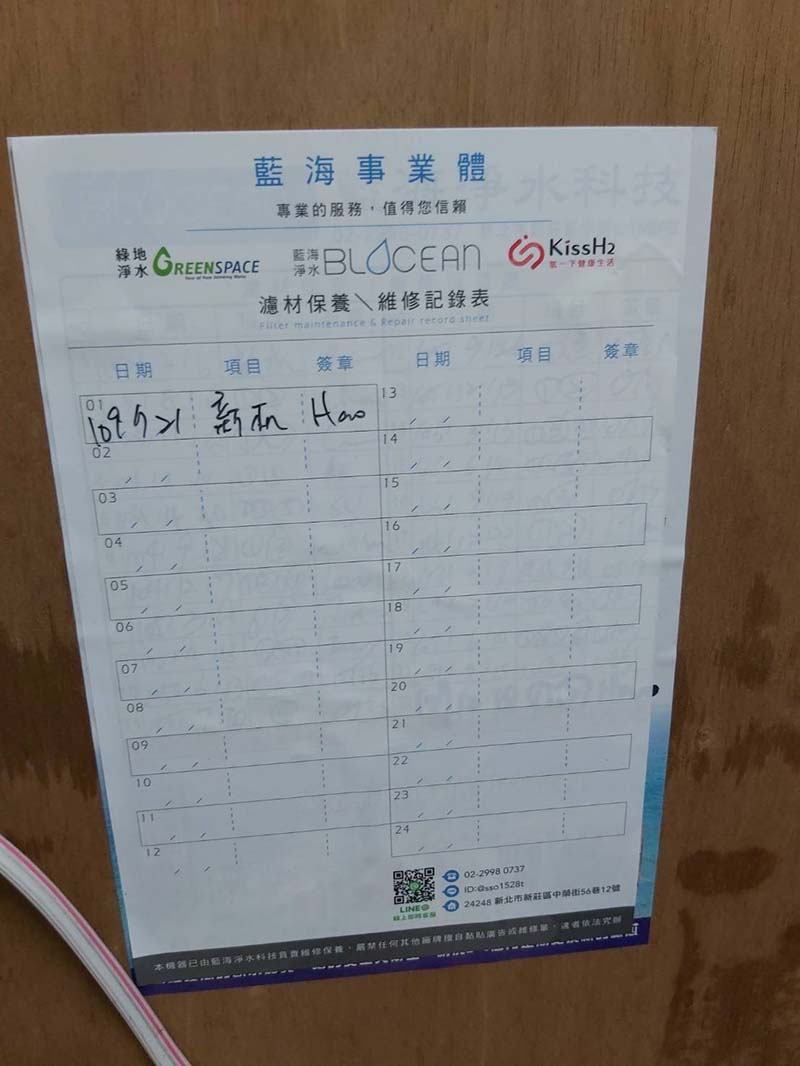 藍海事業體
專業的服務，值得您信賴
綠地淨水 GREENSPACE
藍海淨水 BLOCEAN
KissH2
氫一下健康生活
濾材保養＼維修記錄表
Filter maintenance & Repair record sheet
日期 項目 簽章 日期 項目 簽章
01 新機 Hao
02
03
04
05
06
07
08
09
10
11
12
13
14
15
16
17
18
19
20
21
22
23
24
LINE@
線上即時客服
02-2998 0737
ID:@sso1528t
24248 新北市新莊區中榮街56巷12號
本機器已由藍海淨水科技負責維修保養，嚴禁任何其他廠牌擅自黏貼廣告或維修單，違者依法究辦